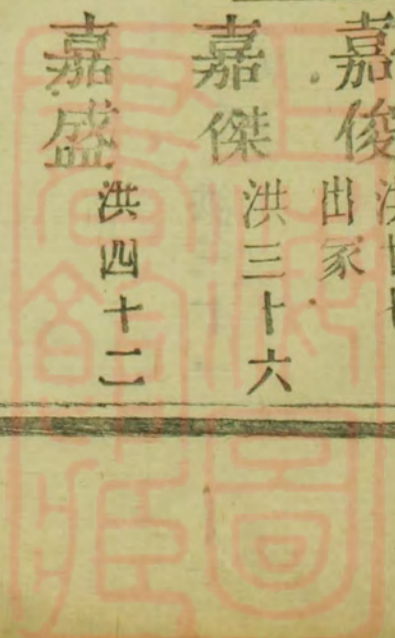 嘉俊
出家
嘉傑 洪三十六
嘉盛 洪四十二